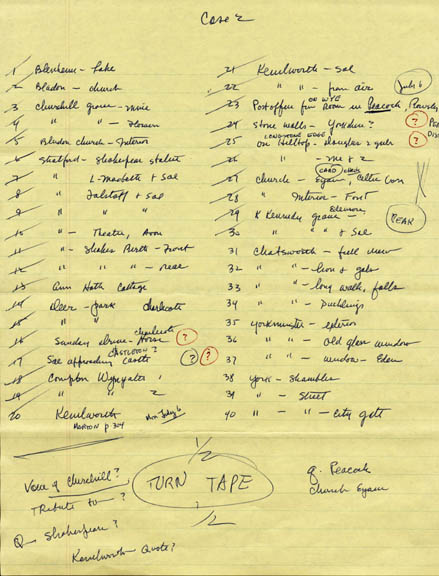 Case 2
1 Blenheim - Lake
2 Bladon - church
3 Churchill grave - mine
4 " " - Flowers
5 Bladon church - Interior
6 Stratford - Shakespear statue
7 " L. Macbeth + Sal
8 " Falstaff + Sal
9 " " "
10 " - Theatre, Avon
11 " - Shakes Birth - Front
12 " " " - rear
13 Ann Hath Cottage
14 Deer - park Charlecote
15 " "
16 Sunday drive - House Charlecote ?
17 Sal approaching Castle CASTLETON? ? ?
18 Compton Wynyates 1
19 " " 2
20 Kenilworth Mon July 6
MORTON p 304
21 Kenilworth - Sal
22 " " - from air July 6
23 Post office for Room in Peacock, ON WYE
24 Stone walls - Yorkshire? ?
25 On Hilltop - Douglas + gals LONGSTONE EDGE ?
26 " " - me + 2
27 church - Eyam, Celtic Cross CARD
28 " Interior - Font
29 K Kennedy grave -
30 " " " + Sal
PEAK
31 Chatsworth - full view
32 " " - lion + gals
33 " " - long walk, falls
34 " " - Ducklings
35 Yorkminster - exterior
36 " " - old glass window
37 " " - window - Eden
38 York - Shambles
39 " - Street
40 " " - " - city gate
1/2
TURN TAPE
1/2
Voice of Churchill?
Tribute to - ?
Q - Shakespeare?
Kenilworth - Quote?
q. Peacock
Church Eyam